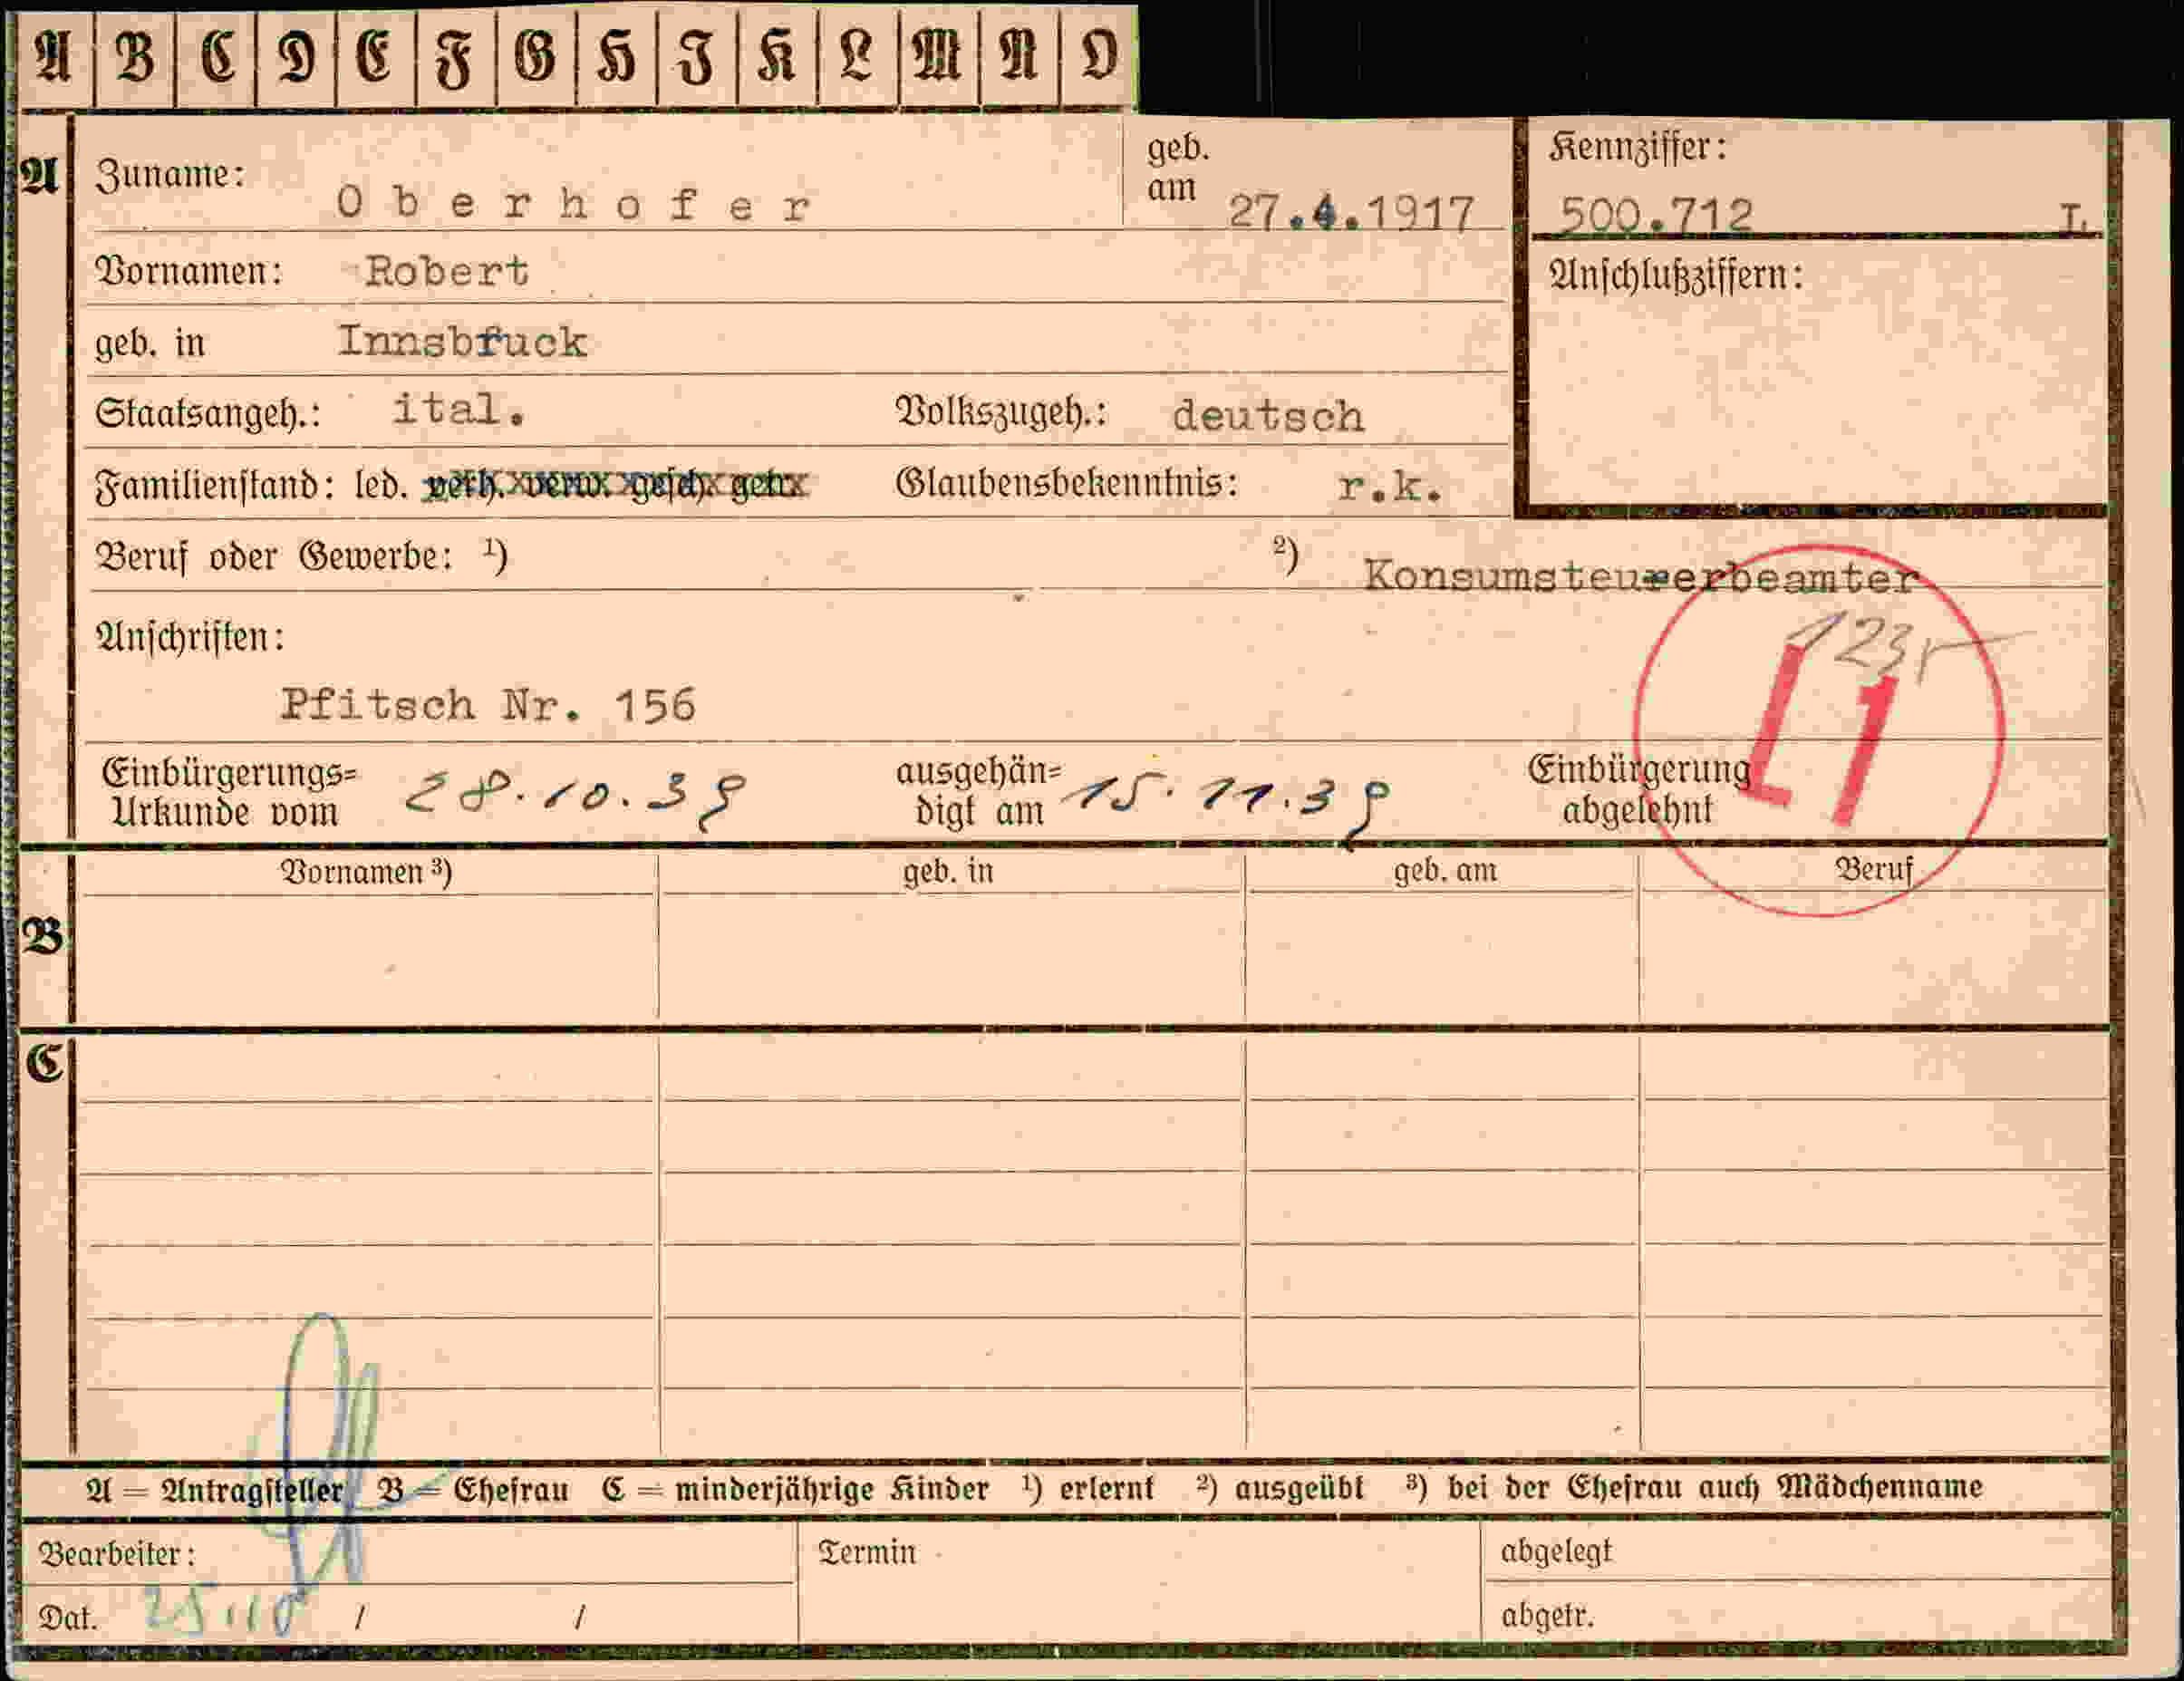 A B C D E F G H I K L M N O
A Zuname: Oberhofer geb. am 27.4.1917 Kennziffer: 500.712 I.
Vornamen: Robert Anschlußziffern:
geb. in Innsbruck
Staatsangeh.: ital. Volkszugeh.: deutsch
Familienstand: led. verh. verw. gesch. getr. Glaubensbekenntnis: r.k.
Beruf oder Gewerbe: ¹) ²) Konsumsteuerbeamter
Anschriften:
Pfitsch Nr. 156
L1
Einbürgerungs= Urkunde vom 28.10.39 ausgehän= digt am 15.11.39 Einbürgerung abgelehnt
Vornamen ³) geb. in geb. am Beruf
B
C
A = Antragsteller B = Ehefrau C = minderjährige Kinder ¹) erlernt ²) ausgeübt ³) bei der Ehefrau auch Mädchenname
Bearbeiter: Termin abgelegt
Dat. / / abgetr.